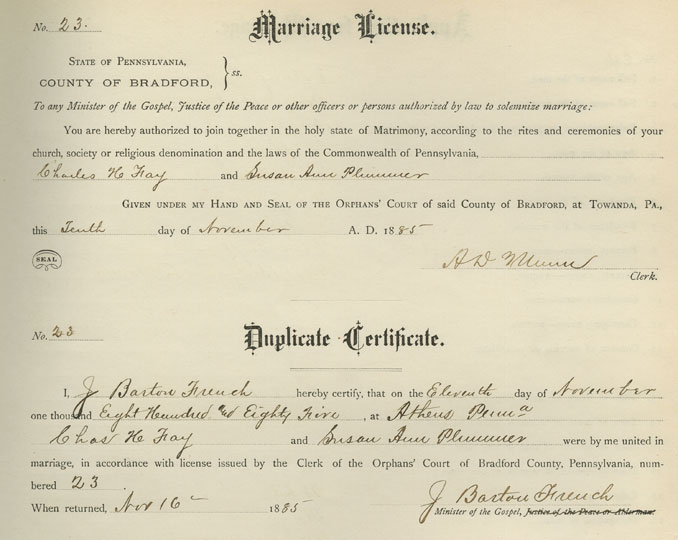 No. 23. Marriage License.
STATE OF PENNSYLVANIA,
COUNTY OF BRADFORD, } ss.
To any Minister of the Gospel, Justice of the Peace or other officers or persons authorized by law to solemnize marriage:
You are hereby authorized to join together in the holy state of Matrimony, according to the rites and ceremonies of your
church, society or religious denomination and the laws of the Commonwealth of Pennsylvania,
Charles H Fay and Susan Ann Plummer
GIVEN UNDER MY HAND AND SEAL OF THE ORPHANS' COURT of said County of BRADFORD, at TOWANDA, PA.,
this Tenth day of November A. D. 1885
SEAL
A D Munn
Clerk.
No. 23 Duplicate Certificate.
I, J Barton French hereby certify, that on the Eleventh day of November
one thousand Eight Hundred and Eighty Five, at Athens Penna
Chas H Fay and Susan Ann Plummer were by me united in
marriage, in accordance with license issued by the Clerk of the Orphans' Court of Bradford County, Pennsylvania, num-
bered 23.
J Barton French
When returned, Nov 16 1885 Minister of the Gospel, Justice of the Peace or Alderman.